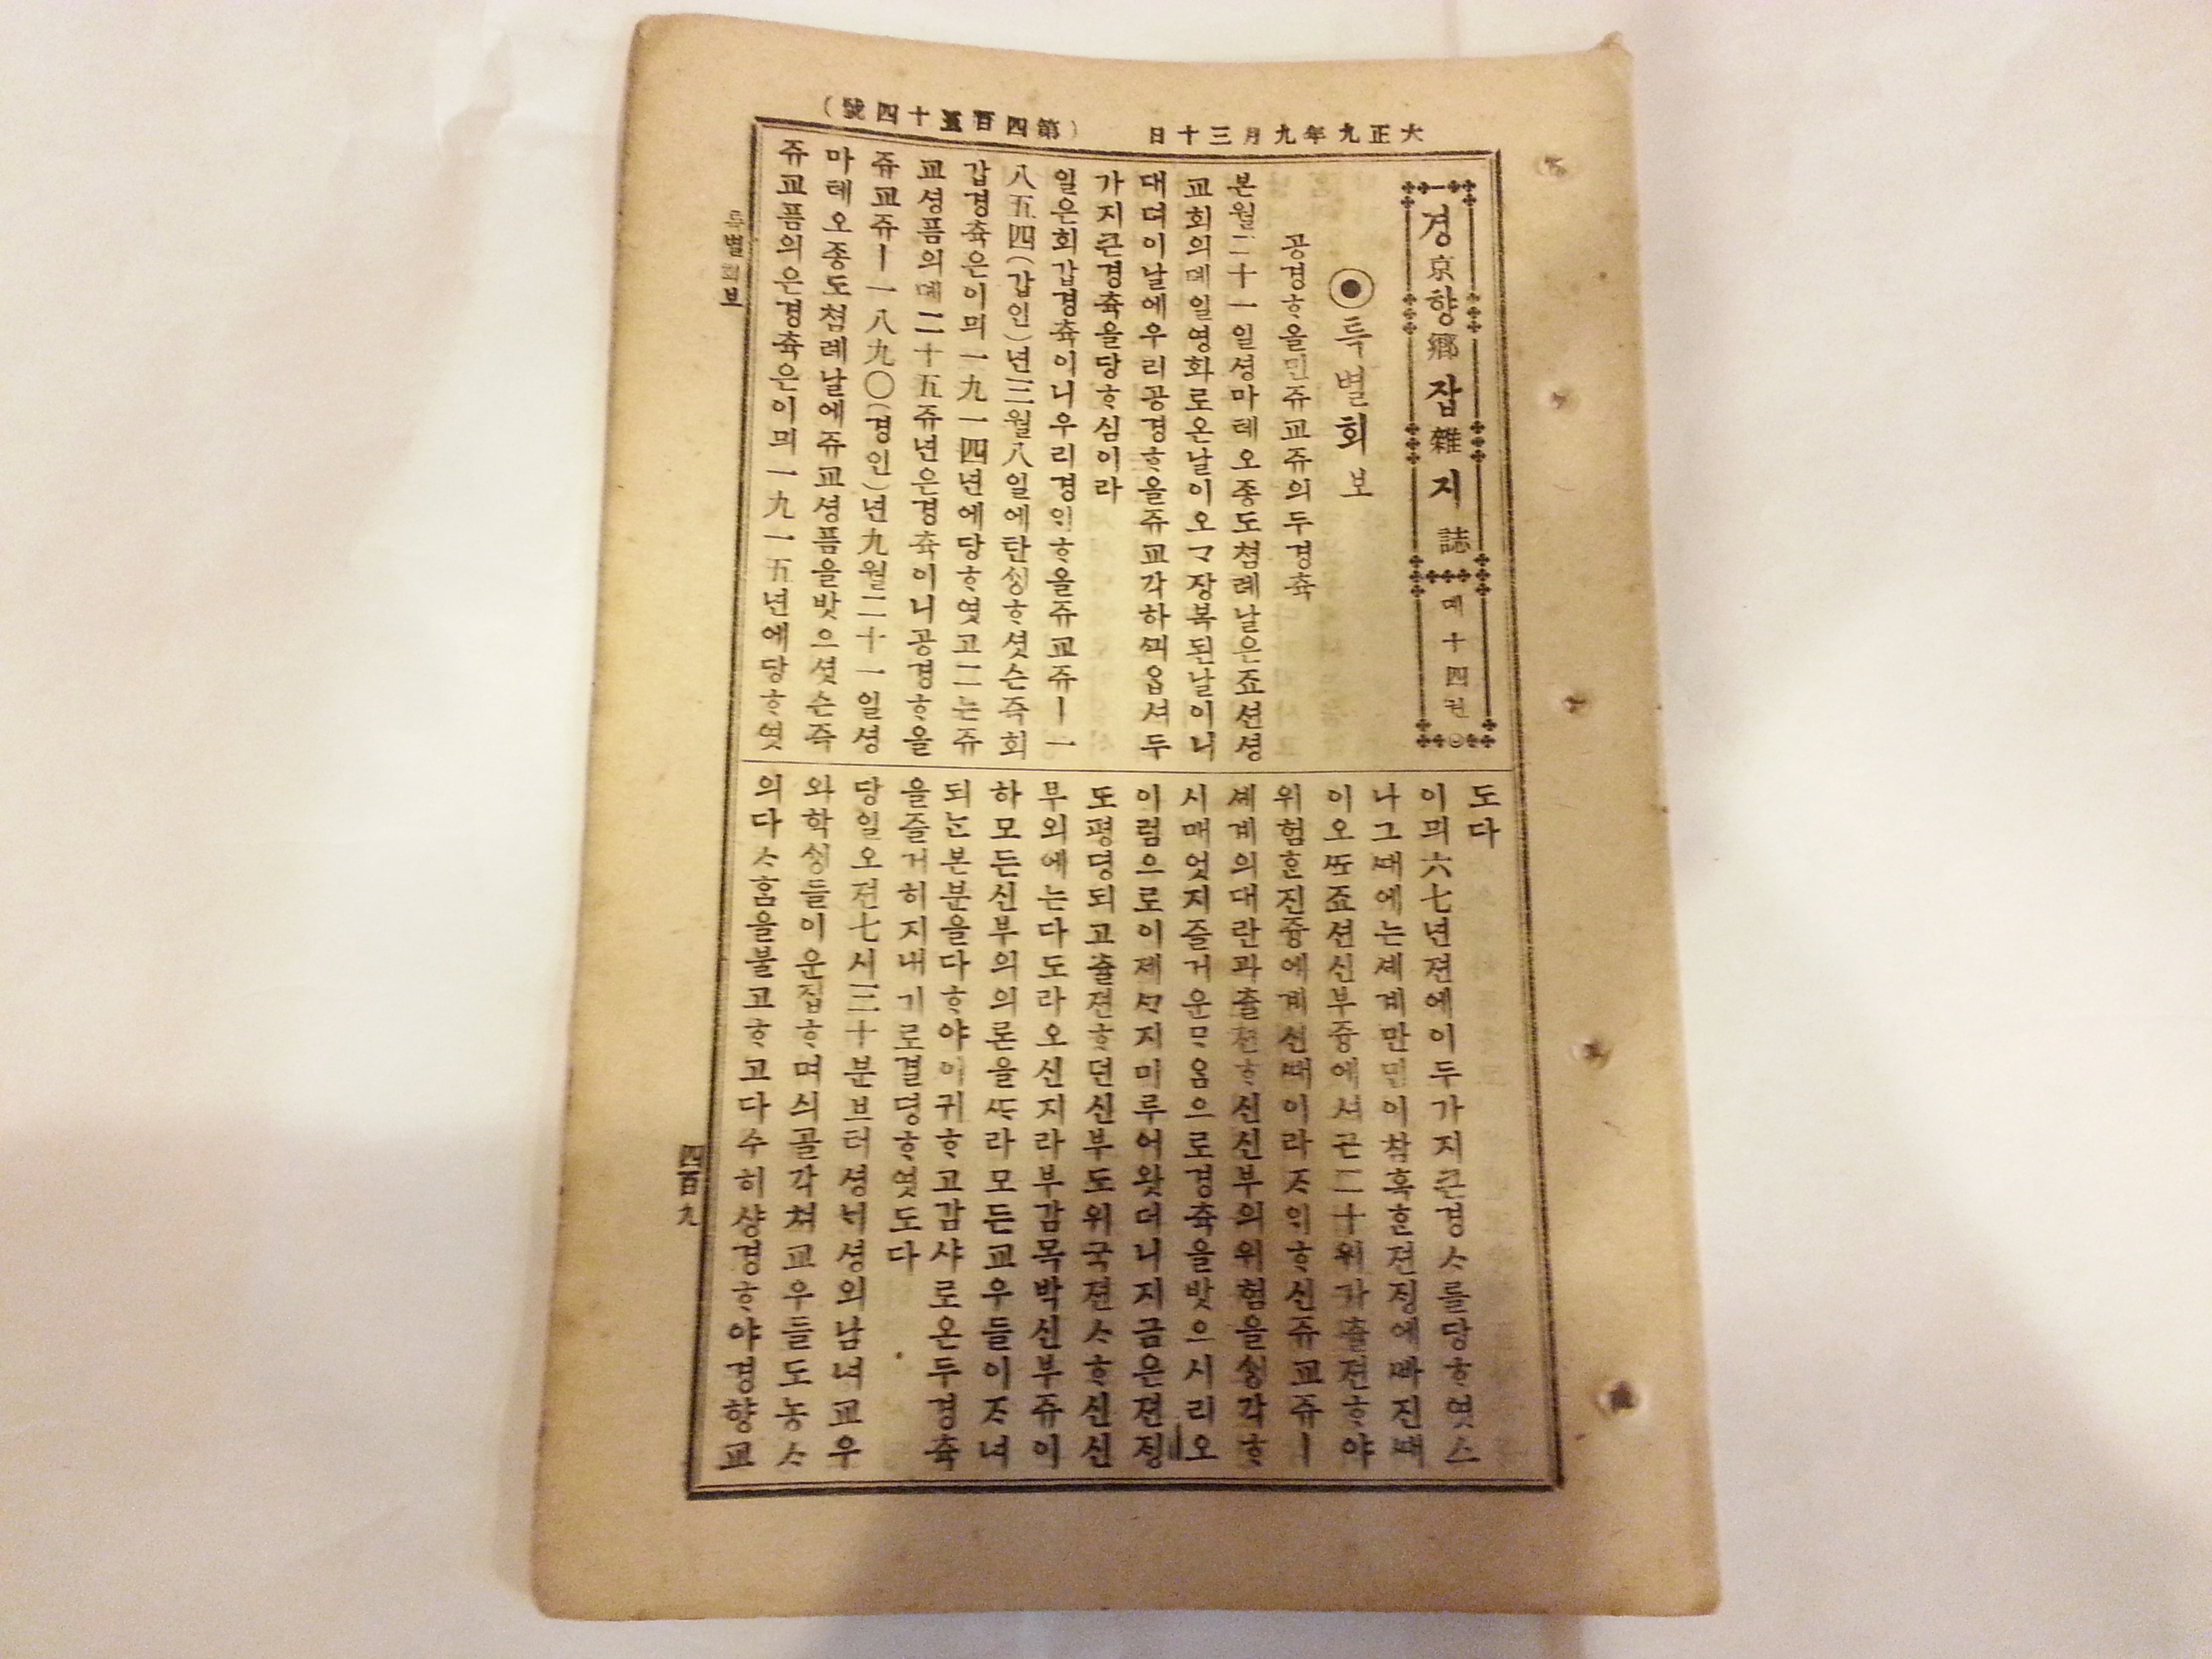 大正九年九月三十日
（第四百五十四號）
경京향鄕잡雜지誌
뎨十四권
◉특별회보
공경ᄒᆞ올민쥬교쥬의두경츅
본월二十一일셩마테오종도쳠례날은죠션셩
교회의뎨일영화로온날이오ᄀᆞ장복된날이니
대뎌이날에우리공경ᄒᆞ올쥬교각하ᄭᅴ옵셔두
가지큰경츅을당ᄒᆞ심이라
일은회갑경츅이니우리경ᄋᆡᄒᆞ올쥬교쥬ㅣ一
八五四（갑인）년三월八일에탄ᄉᆡᆼᄒᆞ셧슨즉회
갑경츅은이믜一九一四년에당ᄒᆞ엿고二는쥬
교셩픔의뎨二十五쥬년은경츅이니공경ᄒᆞ올
쥬교쥬ㅣ一八九〇（경인）년九월二十一일셩
마테오종도쳠례날에쥬교셩픔을밧으셧슨즉
쥬교픔의은경츅은이믜一九一五년에당ᄒᆞ엿
도다
이믜六七년젼에이두가지큰경ᄉᆞ를당ᄒᆞ엿스
나그ᄯᅢ에는셰계만민이참혹ᄒᆞᆫ젼ᄌᆡᆼ에ᄲᅡ진ᄯᅢ
이오ᄯᅩ죠션신부즁에셔근二十위가츌젼ᄒᆞ야
위험ᄒᆞᆫ진즁에계신ᄯᅢ이라ᄌᆞᄋᆡᄒᆞ신쥬교쥬ㅣ
셰계의대란과츌젼ᄒᆞ신신부의위험을ᄉᆡᆼ각ᄒᆞ
시매엇지즐거운ᄆᆞ음으로경츅을밧으시리오
이럼으로이제ᄭᆞ지미루어왓더니지금은젼ᄌᆡᆼ
도평뎡되고츌젼ᄒᆞ던신부도위국젼ᄉᆞᄒᆞ신신
부외에는다도라오신지라부감목박신부쥬이
하모든신부의의론을ᄯᆞ라모든교우들이ᄌᆞ녀
되ᄂᆞᆫ본분을다ᄒᆞ야이귀ᄒᆞ고감샤로온두경츅
을즐거히지내기로결뎡ᄒᆞ엿도다
당일오젼七시三十분브터셩ᄂᆡ셩외남녀교우
와학ᄉᆡᆼ들이운집ᄒᆞ며싀골각쳐교우들도농ᄉᆞ
의다ᄉᆞ홈을불고ᄒᆞ고다수히샹경ᄒᆞ야경향교
특별회보
四百九